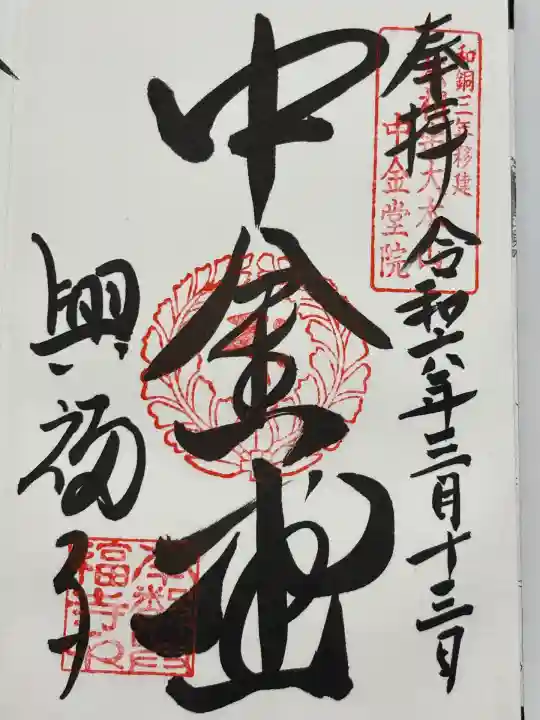 奉拝 令和六年三月十三日
和銅三年移建
中金堂院
中金堂
興福寺